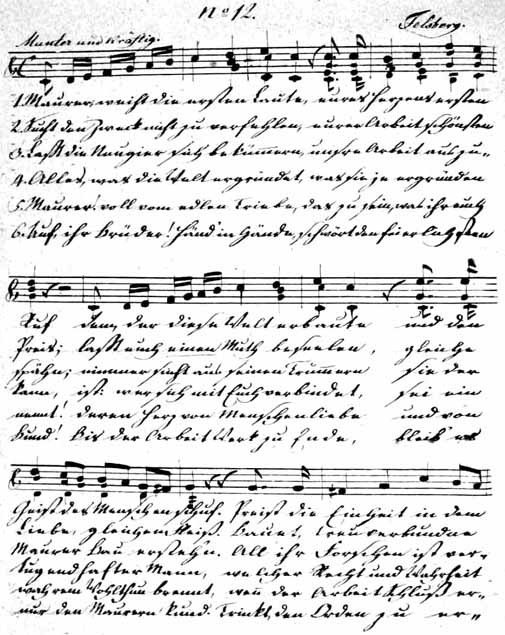 No 12.
Felsberg.
Munter und kräftig.
1. Maurer, weiht die ersten Laute, eures Herzens ersten
2. Sucht den Zweck nicht zu verfehlen, eurer Arbeit schönsten
3. Laßt die Neugier sich bekümmern, unsre Arbeit auszu-
4. Alles, was die Welt ergründet, was sie je ergründen
5. Maurer, voll vom edlen Triebe, das zu sein, was ihr euch
6. Auf, ihr Brüder! Hand in Hände, schwört den feierlichsten
Ruf dem, der diese Welt erbaute und den
Preis; laßt euch einen Muth beseelen, gleiche
spähn; nimmer sieht aus seinen Trümmern sie der
kann, ist: wer sich mit Euch verbindet, sei ein
nennt! deren Herz von Menschenliebe und von
Bund! Bis der Arbeit Werk zu Ende, bleib' es
Geist des Menschen schuf. Preist die Einheit in dem
Liebe, gleichen Fleiß. Bauet, treuverbundne
Maurer Bau erstehn. All ihr Forschen ist ver-
tugendhafter Mann, welcher Recht und Wahrheit
wahrem Wohlthun brennt, wenn der Arbeit Schluß er-
nur den Maurern kund. Trinkt, den Orden zu er-